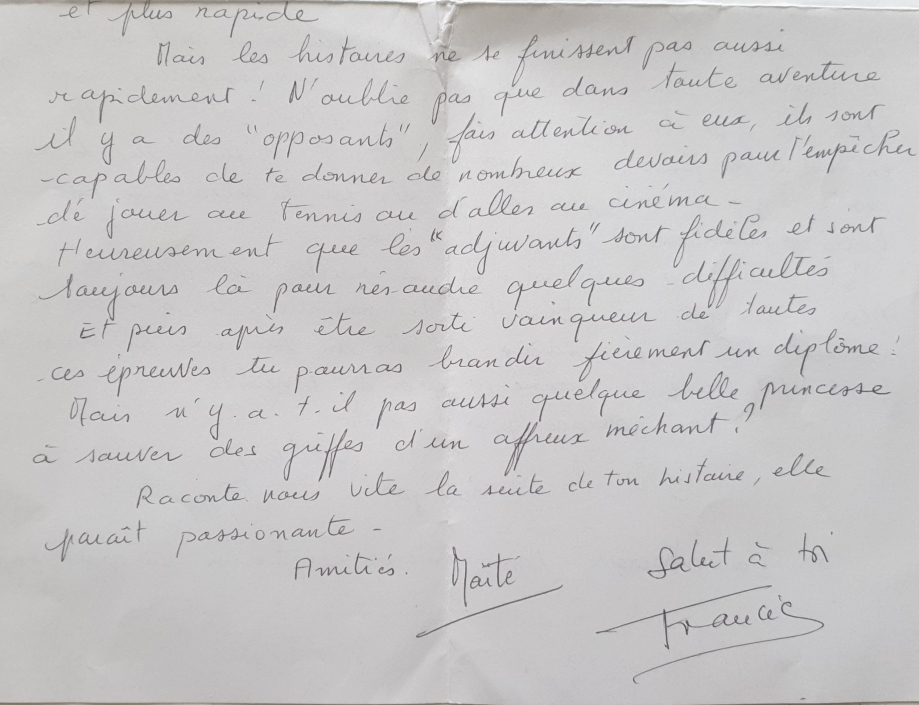 et plus rapide
Mais les histoires ne se finissent pas aussi
rapidement ! N'oublie pas que dans toute aventure
il y a des "opposants", fais attention à eux, ils sont
capables de te donner de nombreux devoirs pour t'empêcher
de jouer au tennis ou d'aller au cinéma -
Heureusement que les "adjuvants" sont fidèles et sont
toujours là pour résoudre quelques difficultés
Et puis après être sorti vainqueur de toutes
ces épreuves tu pourras brandir fièrement un diplôme !
Mais n'y.a.t.il pas aussi quelque belle princesse
à sauver des griffes d'un affreux méchant ?
Raconte nous vite la suite de ton histoire, elle
paraît passionante -
Amitiés. Maïté Salut à toi
Francis